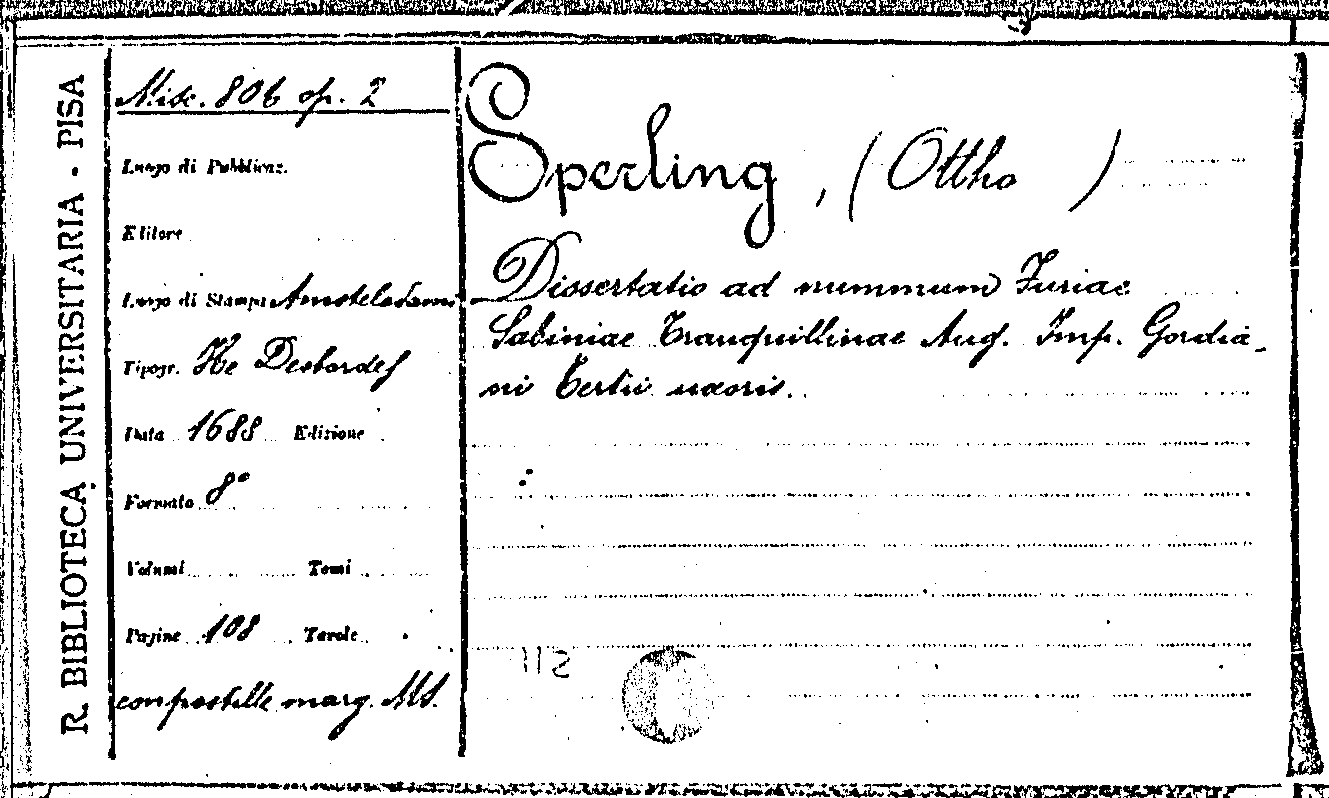 R. BIBLIOTECA UNIVERSITARIA - PISA
Misc. 806 op. 2
Luogo di Pubblicaz.
Editore
Luogo di Stampa Amstelodami
Tipogr. He Desbordes
Data 1688 Edizione
Formato 8°
Volumi Tomi
Pagine 108 Tavole
con postille marg. MS.
Sperling, (Ottho )
Dissertatio ad nummum Furiae
Sabiniae Tranquillinae Aug. Imp. Gordia-
ni Tertii uxoris.
112